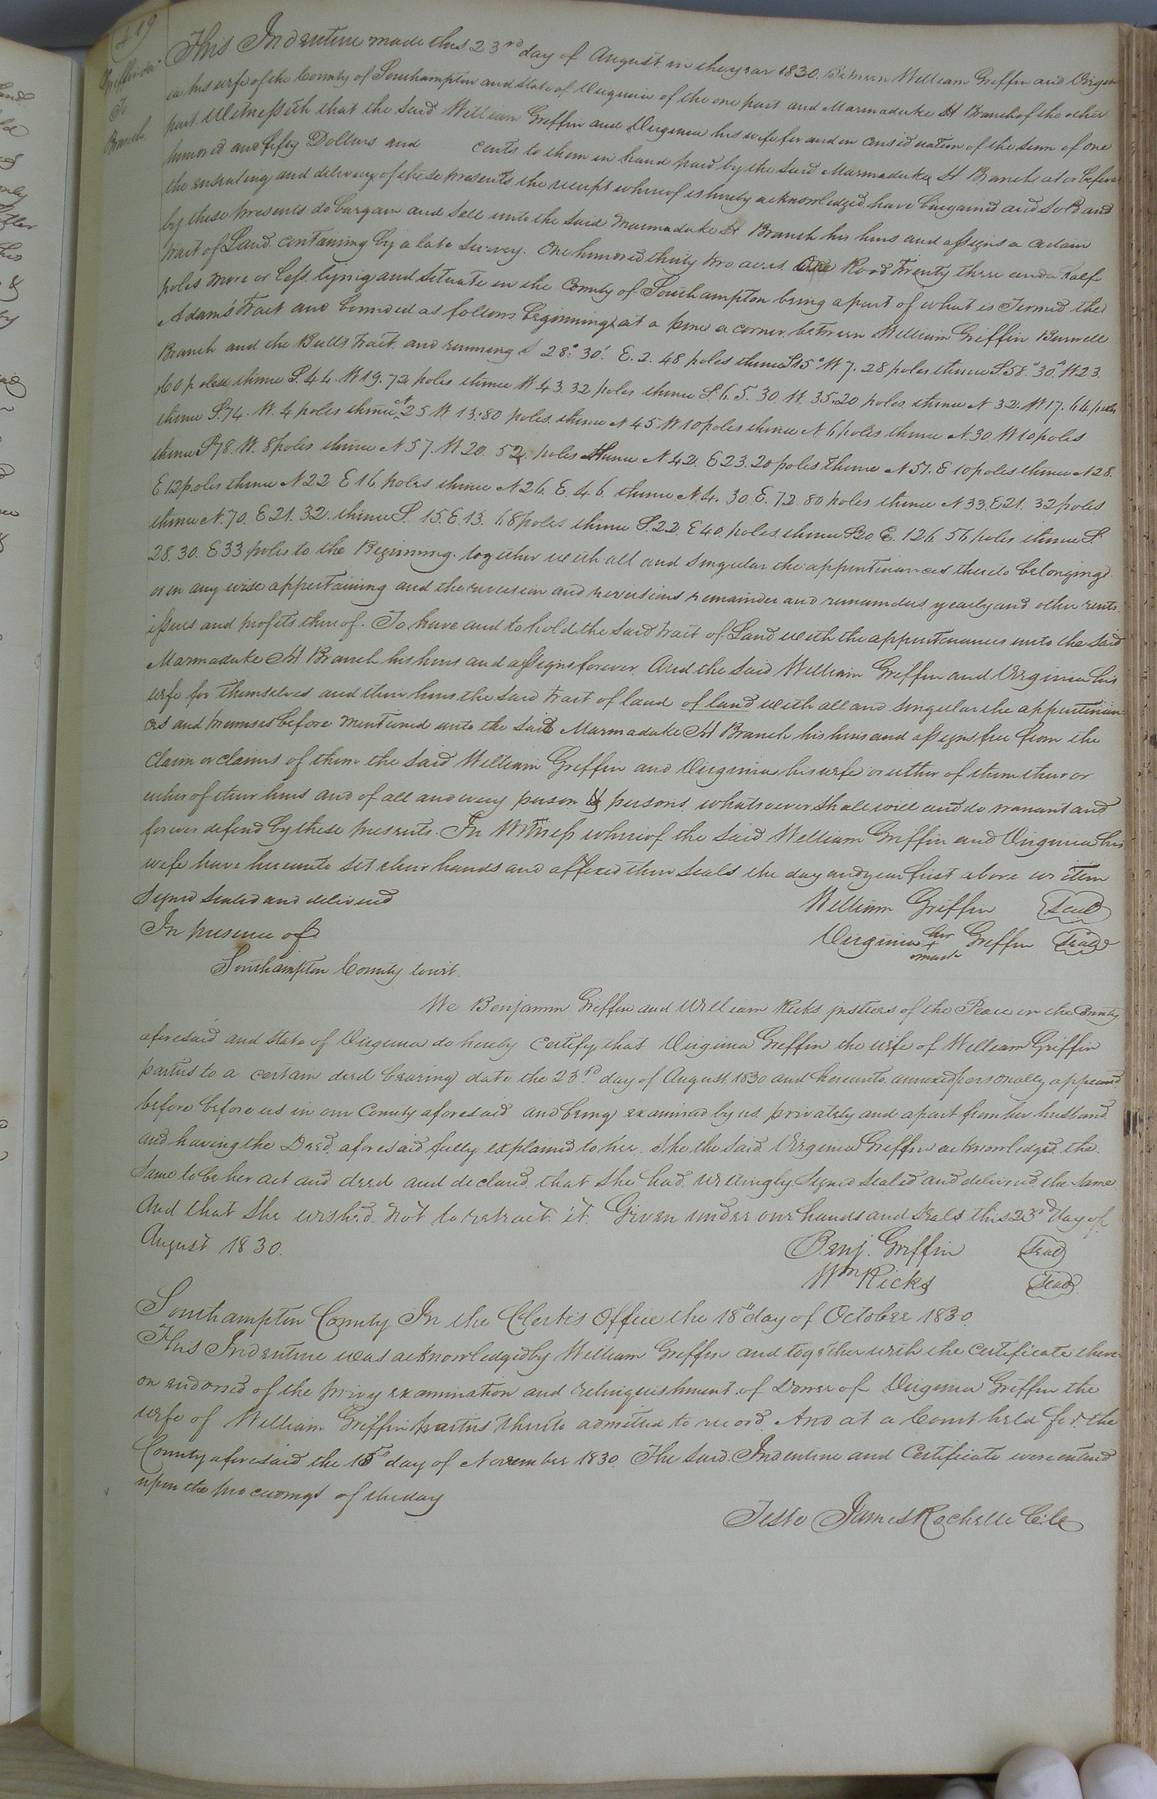 219
Griffin &c
To
Branch
This Indenture made this 23rd day of August in the year 1830. Between William Griffin and Virgin
ia his wife of the County of Southampton and State of Virginia of the one part and Marmaduke H Branch of the other
part Witnesseth that the said William Griffin and Virginia his wife for and in consideration of the sum of one
hundred and fifty Dollars and cents to them in hand paid by the said Marmaduke H Branch at or before
the ensealing and delivery of these presents the receipt whereof is hereby acknowledged have bargained and sold and
by these presents do bargain and sell unto the said Marmaduke H Branch his heirs and assigns a certain
tract of Land containing by a late survey. One hundred thirty two acres One Rood Twenty three and a half
poles more or less lying and situate in the County of Southampton being a part of what is Termed the
Adam's Tract and bounded as follows Beginning at a pine a corner between William Griffin Burwell
Branch and the Butts Tract and running S 28° 30' E. 2. 48 poles thence S 15° W 7. 28 poles thence S 58° 30' W 23.
60 poles thence S. 44. W 19. 72 poles thence W 43 32 poles thence S. 6. 5. 30 W. 35.20 poles thence N 32. W 17. 64 poles
thence S. 74. W. 4 poles thence 25 W 13.80 poles. thence N 45 W 10 poles thence N. 6 poles thence N. 30 W 10 poles
thence S 78. W. 8 poles thence N 57. W 20. 52 poles thence N 42. E 23. 20 poles Thence N 51. E 10 poles thence N 28.
E 12 poles thence N 22 E 16. poles thence N 26. E. 46. thence N. 4. 30 E. 72 80 poles thence N 33. E 21. 32 poles
thence N. 70. E 21. 32. thence S. 15. E. 13. 68 poles thence S. 22. E 40. poles thence S 20 E. 126 56 poles thence S
28. 30. E 33 poles to the Beginning. together with all and singular the appurtenances thereto belonging
or in any wise appertaining and the reversion and reversions remainder and remainders yearly and other rents.
issues and profits thereof. To have and to hold the said tract of Land with the appurtenances unto the said
Marmaduke H Branch his heirs and assigns forever. And the said William Griffin and Virginia his
wife for themselves and their heirs the said tract of land of land with all and singular the appurtenan
ces and premises before mentioned unto the said Marmaduke H Branch his heirs and assigns free from the
Claim or claims of them the said William Griffin and Virginia his wife or either of them their or
either of their heirs and of all and every person & persons whatsoever shall will and do warrant and
forever defend by these presents. In Witness whereof the said William Griffin and Virginia his
wife have hereunto set their hands and affixed their seals the day and year first above written
Signed Sealed and delivered William Griffin Seal
In presence of Virginia her + mark Griffin Seal
Southampton County towit.
We Benjamin Griffin and William Ricks justices of the Peace in the County
aforesaid and State of Virginia do hereby certify that Virginia Griffin the wife of William Griffin
parties to a certain deed bearing date the 23rd day of August 1830 and hereunto annexed personally appeared
before before us in our County aforesaid and being examined by us privately and apart from her husband
and having the Deed aforesaid fully explained to her. She the said Virginia Griffin acknowledged the
same to be her act and deed and declared that she had willingly signed sealed and delivered the same
And that She wished not to retract it. Given under our hands and seals this 23rd day of
August 1830. Benj. Griffin Seal
Wm Ricks Seal
Southampton County In the Clerk's Office the 18th day of October 1830
This Indenture was acknowledged by William Griffin and together with the Certificate there
on endorsed of the privy examination and relinquishment of Dower of Virginia Griffin the
wife of William Griffin parties thereto admitted to record. And at a Court held for the
County aforesaid the 15th day of November 1830 The said Indenture and Certificate were entered
upon the proceedings of the day
Teste James Rochelle C.C